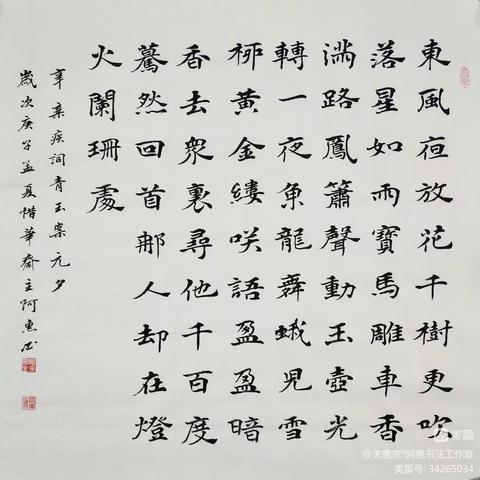 東風夜放花千樹更吹
落星如雨寶馬雕車香
滿路鳳簫聲動玉壺光
轉一夜魚龍舞蛾兒雪
柳黃金縷咲語盈盈暗
香去衆裏尋他千百度
驀然回首那人却在燈
火闌珊處
辛棄疾词青玉案元夕
歲次庚子孟夏惜華齋主阿惠书
美篇
@关惠宗*阿惠书法工作室
美篇号: 34265034